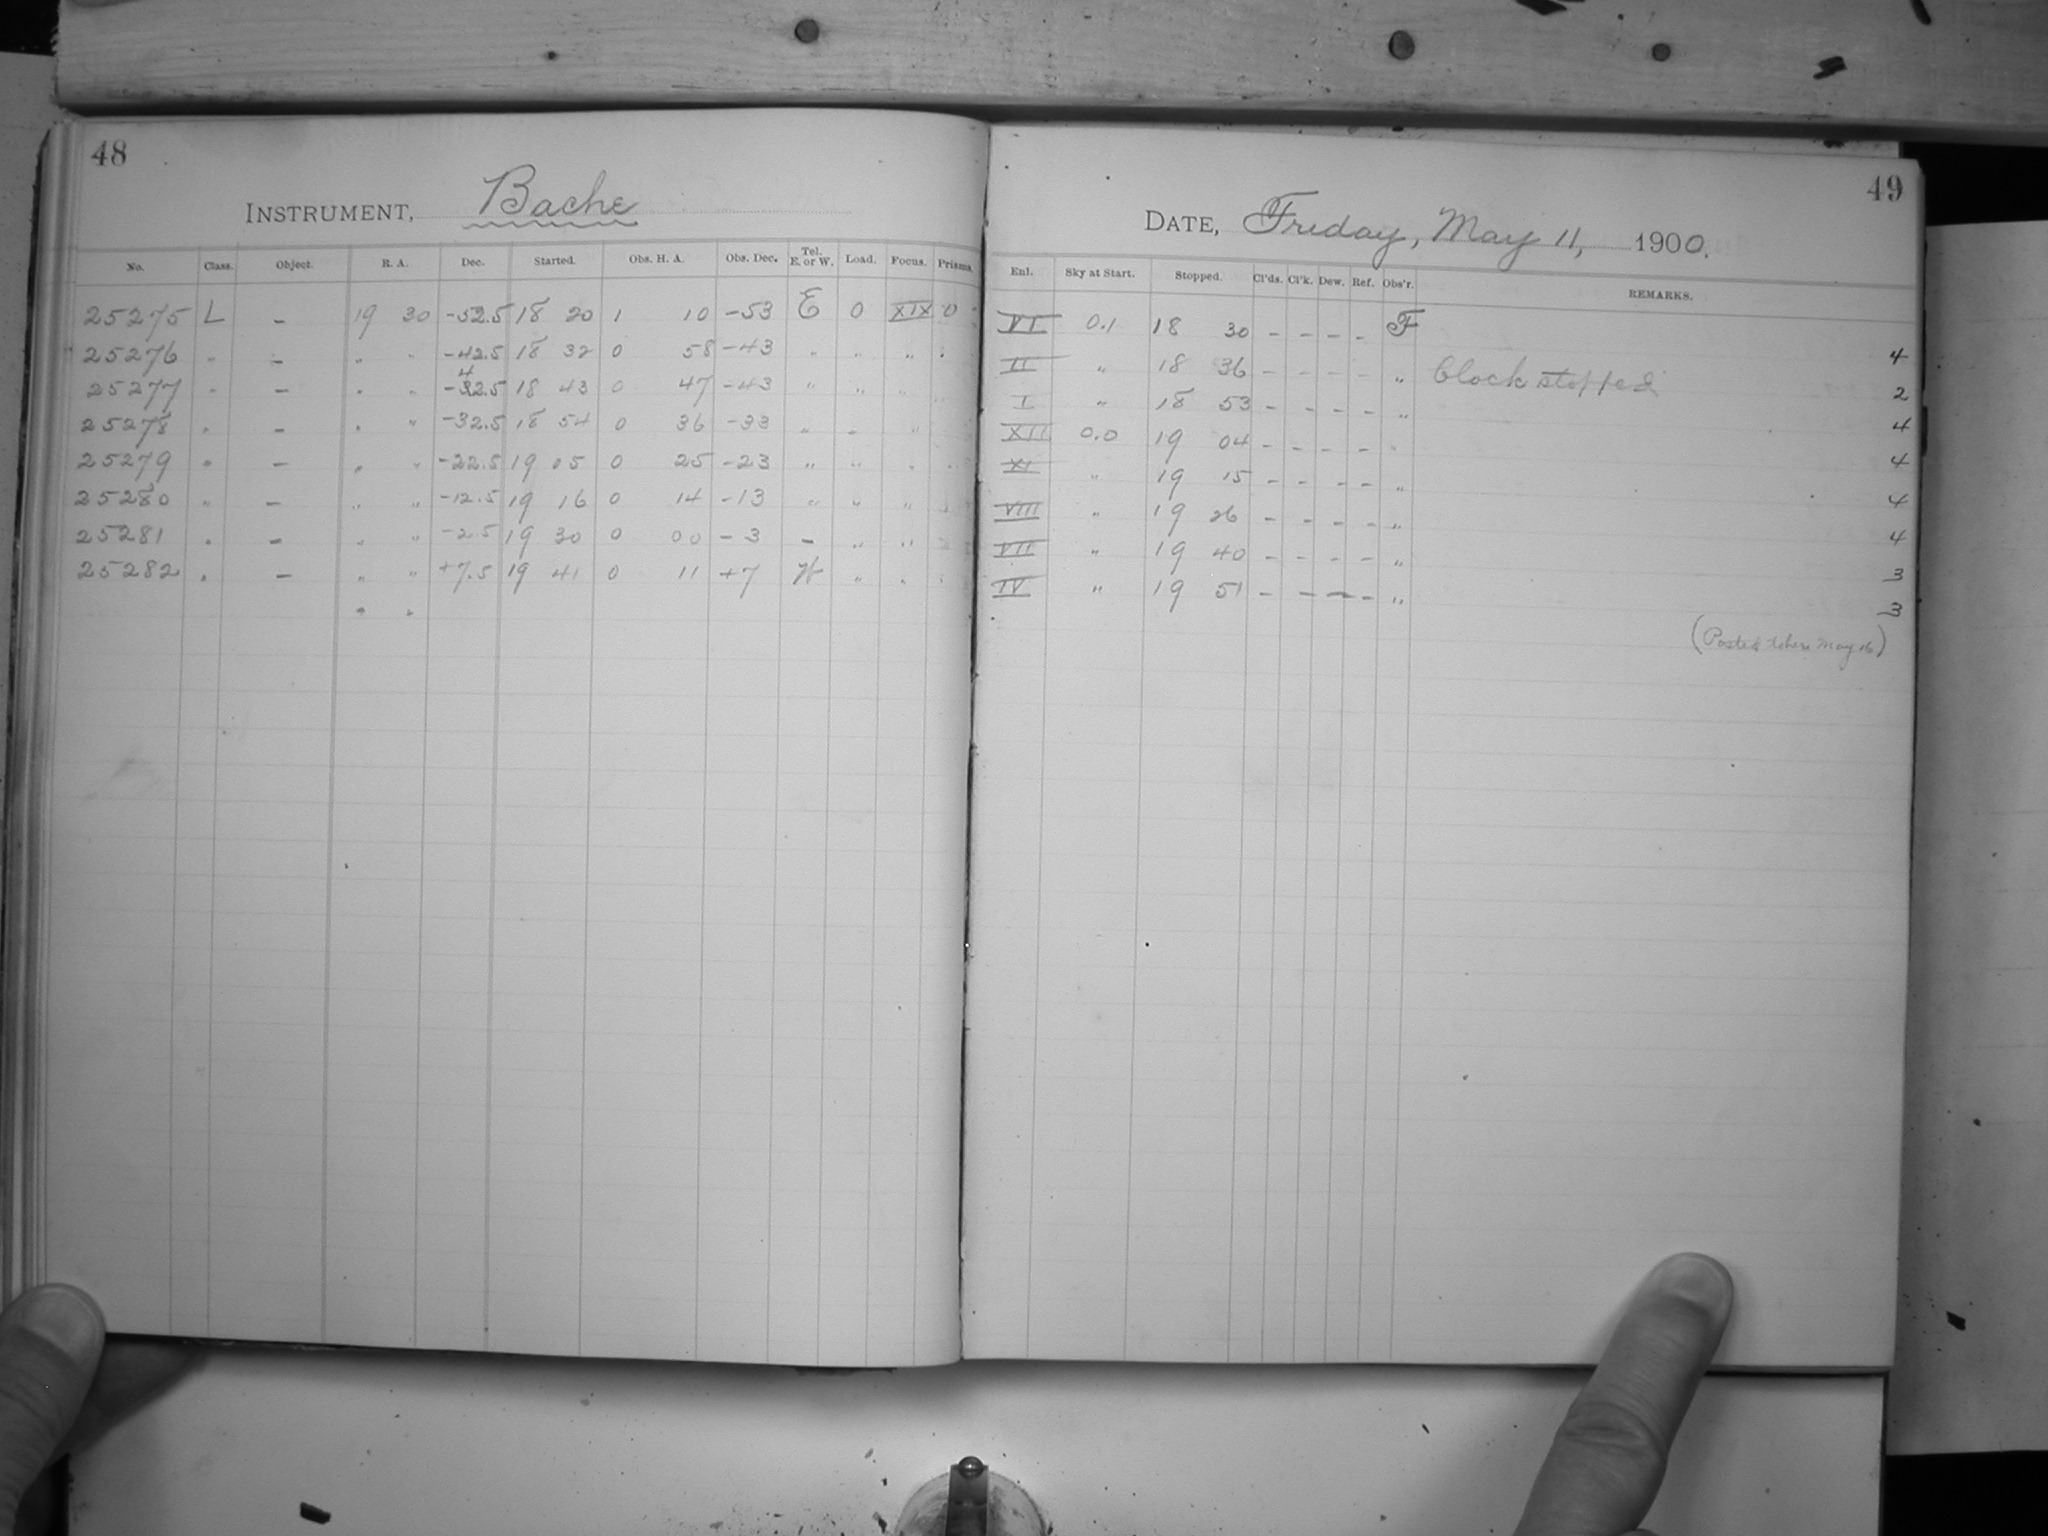 48
INSTRUMENT, Bache
No. Class. Object. R. A. Dec. Started. Obs. H. A. Obs. Dec. Tel. E. or W. Load. Focus. Prisms.
25275 L – 19 30 -52.5 18 20 1 10 -53 E 0 XIX 0
25276 " – " " -42.5 18 32 0 58 -43 " " "
25277 " – " " -42.5 18 43 0 47 -43 " " "
25278 " – " " -32.5 18 54 0 36 -33 " " "
25279 " – " " -22.5 19 05 0 25 -23 " " " "
25280 " – " " -12.5 19 16 0 14 -13 " " "
25281 " – " " -2.5 19 30 0 00 -3 – " "
25282 " – " " +7.5 19 41 0 11 +7 W " "
" "
49
DATE, Friday, May 11, 1900.
Enl. Sky at Start. Stopped. Cl'ds. Cl'k. Dew. Ref. Obs'r. REMARKS.
VI 0.1 18 30 – – – – F 4
II " 18 36 – – – – " Clock stopped 2
I " 18 53 – – – – " 4
XII 0.0 19 04 – – – – " 4
XI " 19 15 – – – – " 4
VIII " 19 26 – – – – " 4
VII " 19 40 – – – – " 3
IV " 19 51 – – – – " 3
(Posted when May 16)